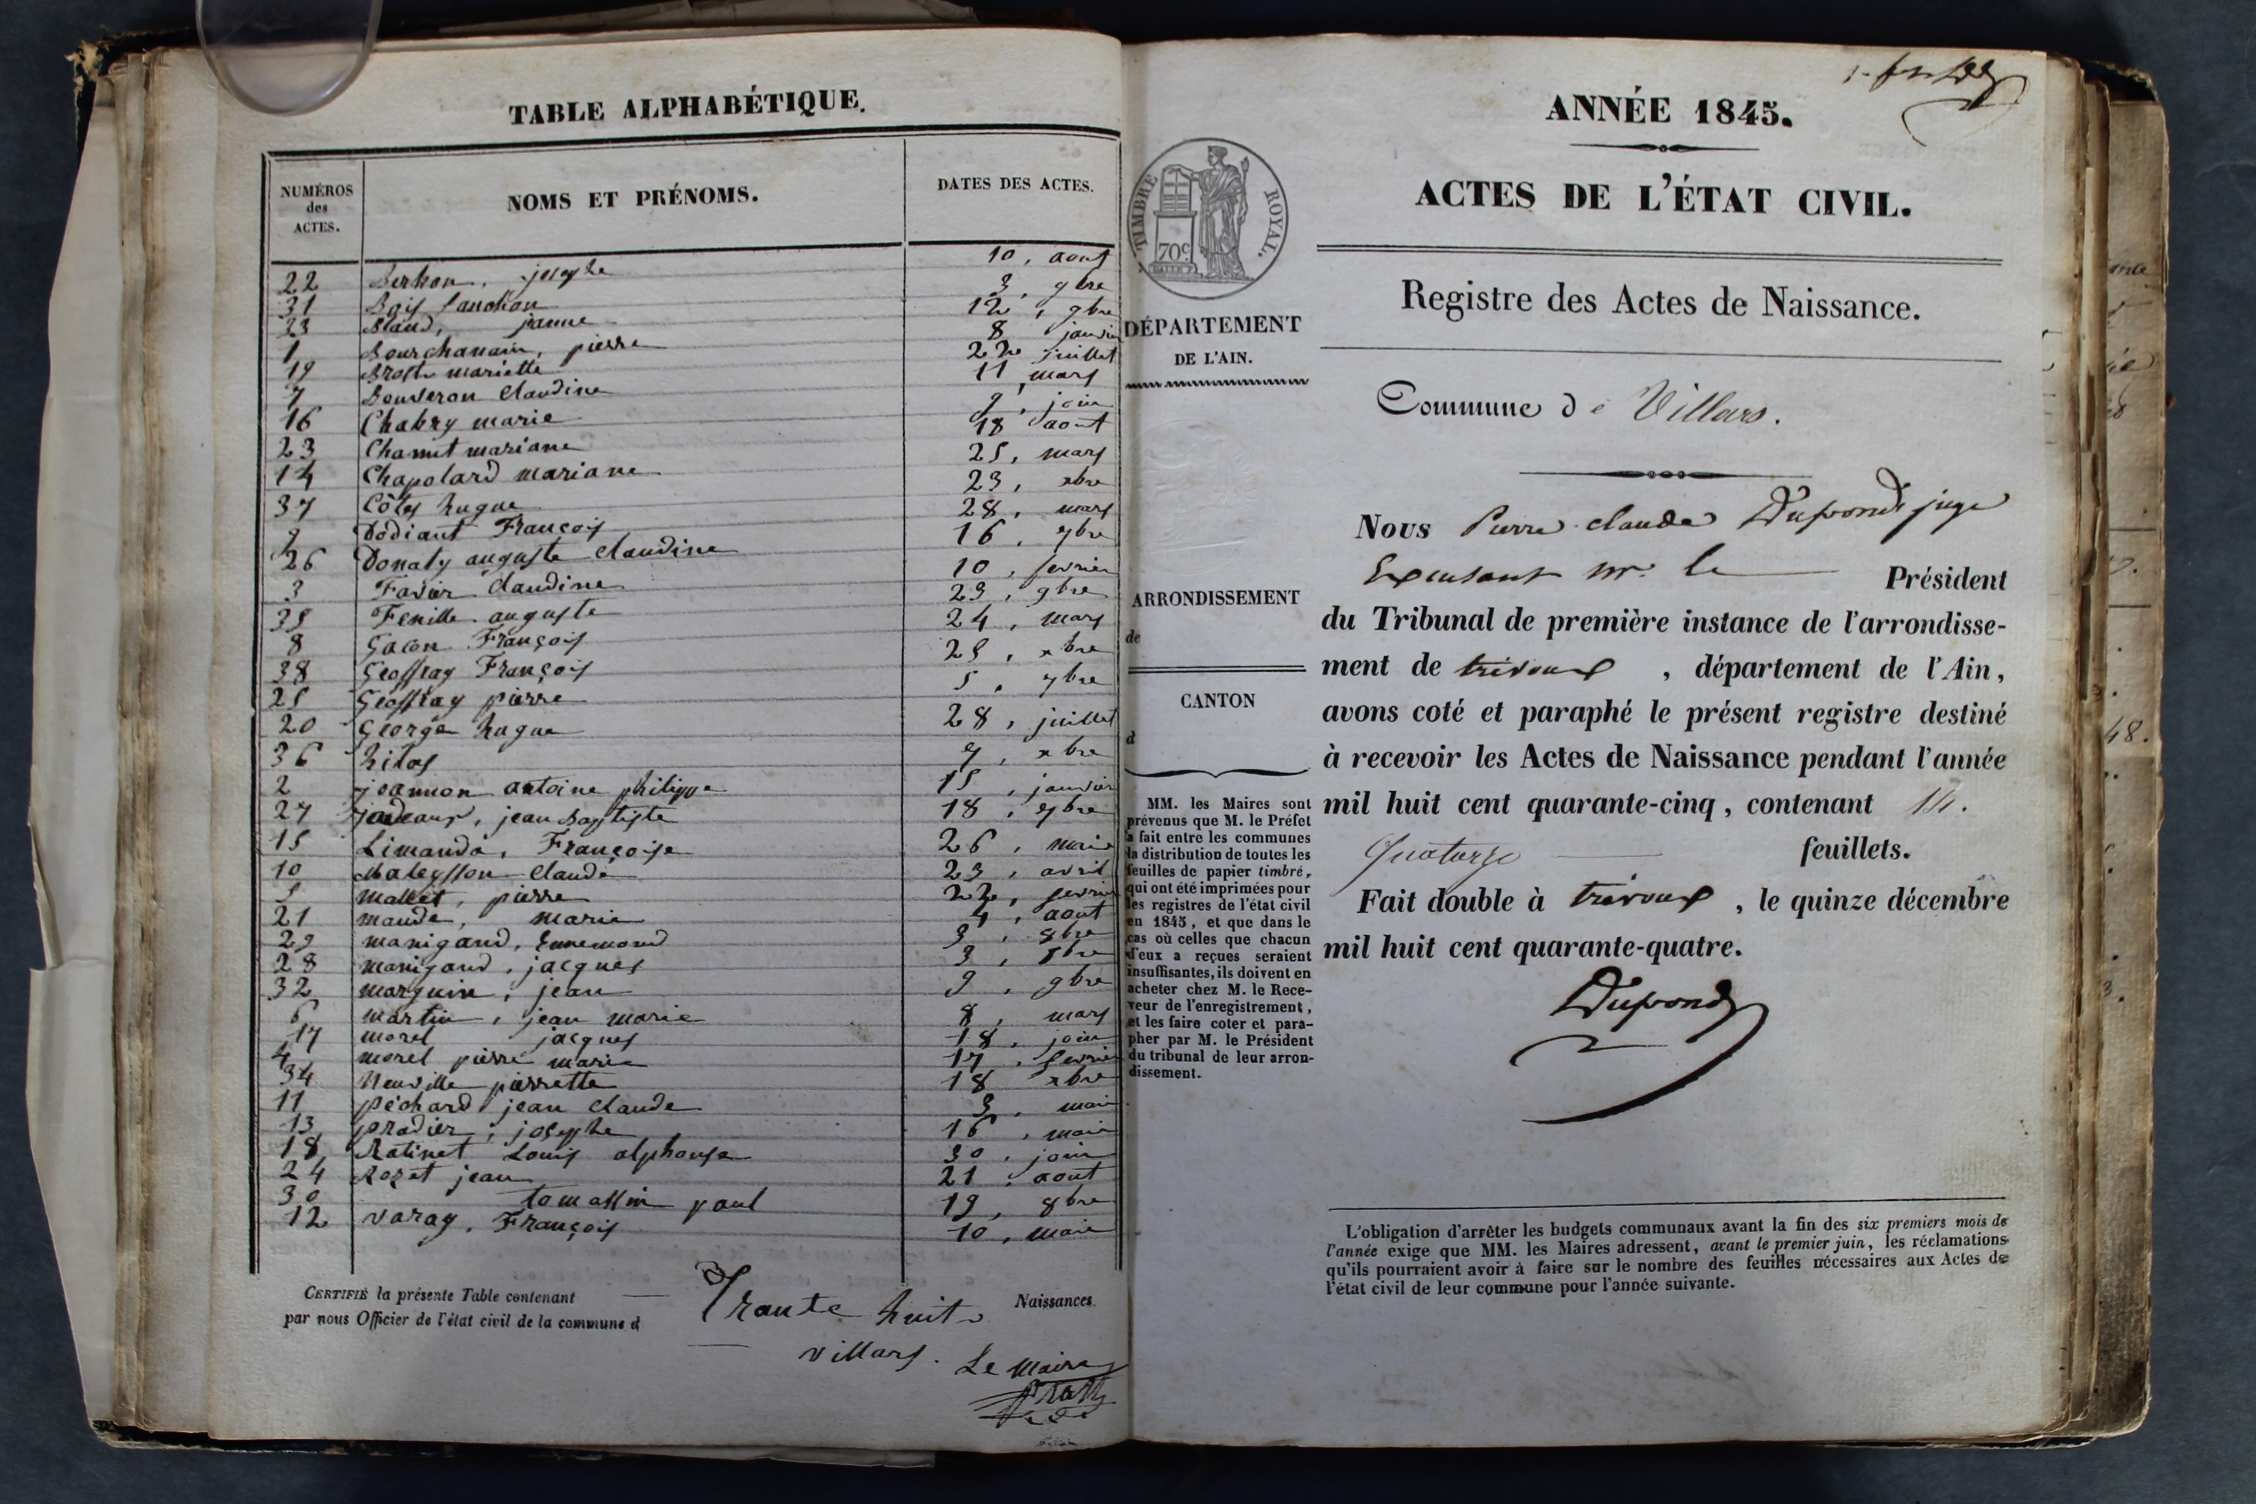 TABLE ALPHABÉTIQUE.
NUMÉROS des ACTES. NOMS ET PRÉNOMS. DATES DES ACTES.
22 Berthon, josephe 10, aout
31 Bois fanchon 3, 9bre
33 Blaud, janne 12, 9bre
1 Bourchanain, pierre 8 janvier
19 mariette 22 juillet
7 Bouveron Claudine 11, mars
16 Chabry marie 9, juin
23 mariane 18 aout
14 Chapolard mariane 25, mars
37 Côtes hugue 23, xbre
9 Dodiant François 28, mars
26 Donaty auguste claudine 16, 7bre
3 Favier Claudine 10, fevrier
35 Fenille auguste 23, 9bre
8 Gacon François 24, mars
38 Geoffray François 25, xbre
25 Geoffray pierre 5, 7bre
20 George hugue 28, juillet
36 hilas 7, xbre
2 jeannon antoine philippe 15, janvier
27 jean Baptiste 18, 7bre
15 Limandà, Françoise 26, mai
10 Mateysson Claude 23, avril
5 mallet, pierre 22, fevrier
21 maude, marie 4, aout
29 manigand, Ennemond 3, 8bre
28 manigand, jacques 3, 8bre
32 marguin, jean 9, 9bre
6 martin, jean marie 8, mars
17 morel jacques 18, juin
4 morel pierre marie 17, fevrier
34 Neuville pierrette 18 xbre
11 péchard jean claude 3, mai
13 pradier, josephe 16, mai
18 Ratinet Louis alphonse 30, juin
24 Rozet jean 21, aout
30 tomassin paul 19, 8bre
12 varay, François 10, mai
CERTIFIÉ la présente Table contenant Trante huit Naissances.
par nous Officier de l'état civil de la commune d villars.
Le maire
ANNÉE 1845.
ACTES DE L'ÉTAT CIVIL.
TIMBRE ROYAL.
70c
DÉPARTEMENT
DE L'AIN.
ARRONDISSEMENT
de
CANTON
d
MM. les Maires sont
prévenus que M. le Préfet
a fait entre les communes
la distribution de toutes les
feuilles de papier timbré,
qui ont été imprimées pour
les registres de l'état civil
en 1845, et que dans le
cas où celles que chacun
d'eux a reçues seraient
insuffisantes, ils doivent en
acheter chez M. le Rece-
veur de l'enregistrement,
et les faire coter et para-
pher par M. le Président
du tribunal de leur arron-
dissement.
Registre des Actes de Naissance.
Commune de Villars.
Nous Pierre claude Dupond juge
Excusant mr. le Président
du Tribunal de première instance de l'arrondisse-
ment de trévoux, département de l'Ain,
avons coté et paraphé le présent registre destiné
à recevoir les Actes de Naissance pendant l'année
mil huit cent quarante-cinq, contenant 14.
Quatorze feuillets.
Fait double à trévoux, le quinze décembre
mil huit cent quarante-quatre.
Dupond
L'obligation d'arrêter les budgets communaux avant la fin des six premiers mois de
l'année exige que MM. les Maires adressent, avant le premier juin, les réclamations
qu'ils pourraient avoir à faire sur le nombre des feuilles nécessaires aux Actes de
l'état civil de leur commune pour l'année suivante.